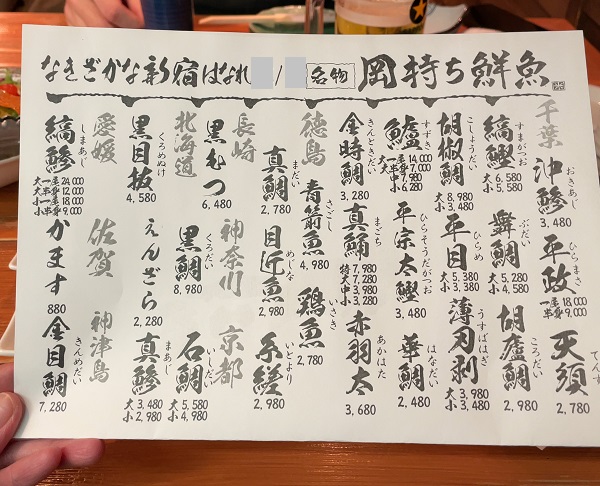 なきざかな新宿はなれ / 名物 岡持ち鮮魚
千葉
沖鯵 おきあじ 3,480
平政 ひらまさ
一尾 18,000
半身 9,000
天須 てんす 2,780
縞鰹 すまがつお
大 6,580
小 5,580
舞鯛 ぶだい
大 5,280
小 4,580
胡盧鯛 ころだい 2,980
胡椒鯛 こしょうだい
大 8,980
小 3,480
平目 ひらめ
大 5,380
小 3,380
薄刃剥 うすばはぎ
大 3,980
小 3,480
鱸 すずき
大一尾 14,000
大半身 7,000
中 6,280
平宗太鰹 ひらそうだがつお 3,480
華鯛 はなだい 2,480
金時鯛 きんときだい 3,280
真鯒 まごち
特大 7,980
大 7,280
中 4,980
小 3,980
赤羽太 あかはた 3,680
徳島
青箭魚 さごし 4,980
鶏魚 いさき 2,780
真鯛 まだい 2,780
目近魚 めじな 2,980
糸縒 いとより 2,980
長崎
神奈川
京都
黒むつ 6,480
北海道
黒鯛 くろだい 8,980
石鯛 いしだい
大 5,580
小 4,980
黒目抜 くろめぬけ 4,580
えんざら 2,280
真鯵 まあじ
大 3,480
小 2,980
愛媛
佐賀
神津島
縞鯵 しまあじ
大一尾 24,000
大半身 12,000
小一尾 18,000
小半身 9,000
かます 880
金目鯛 きんめだい 7,280